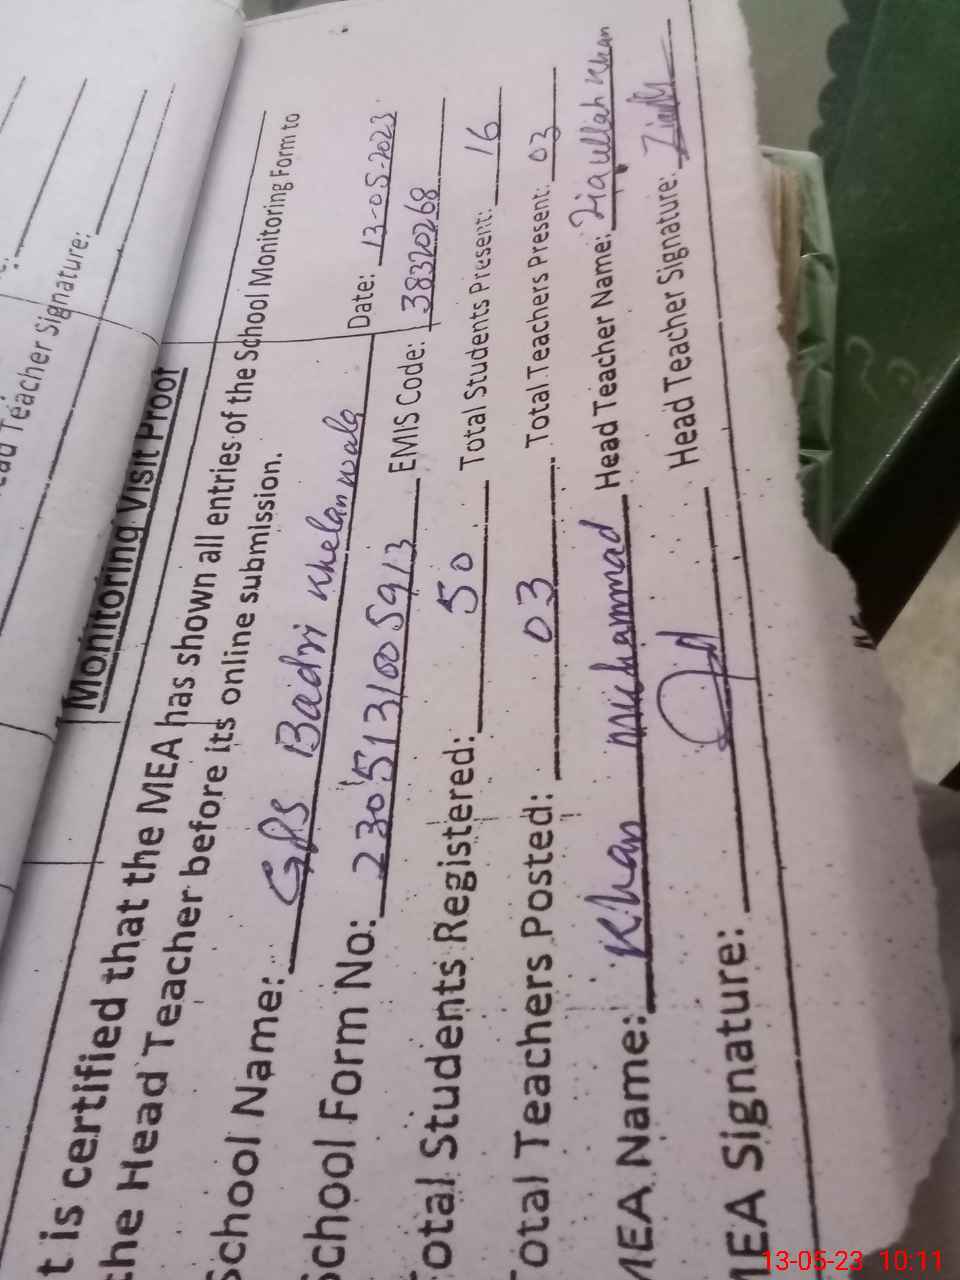 ad Teacher Signature:
Monitoring Visit Proof
t is certified that the MEA has shown all entries of the School Monitoring Form to
the Head Teacher before its online submission.
School Name: GPS Badri Khelanwala Date: 13-05-2023
School Form No: 2305131005913 EMIS Code: 38320268
Total Students Registered: 50 Total Students Present: 16
Total Teachers Posted: 03 Total Teachers Present: 03
MEA Name: Khan Muhammad Head Teacher Name: Ziaullah Khan
MEA Signature: Head Teacher Signature:
13-05-23 10:11